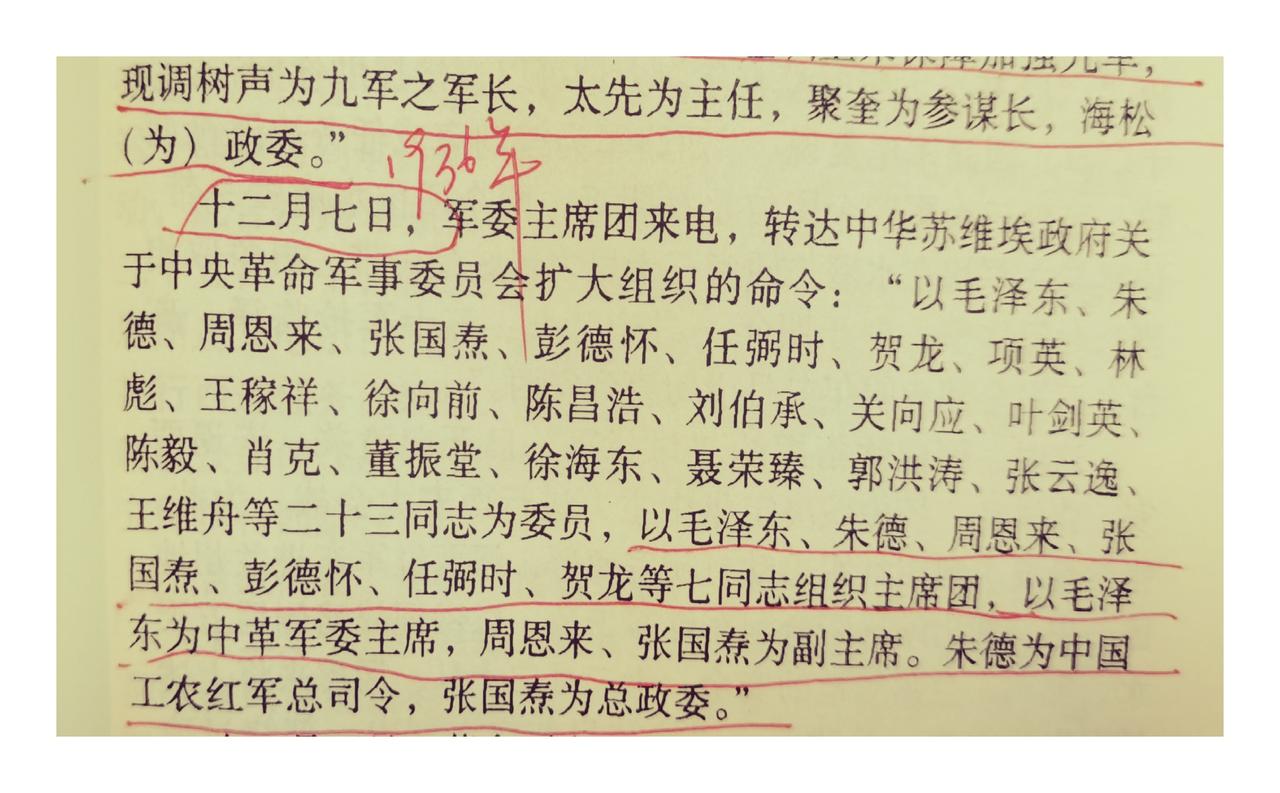 现调树声为九军之军长，太先为主任，聚奎为参谋长，海松
（为）政委。”
1936年
十二月七日，军委主席团来电，转达中华苏维埃政府关
于中央革命军事委员会扩大组织的命令：“以毛泽东、朱
德、周恩来、张国焘、彭德怀、任弼时、贺龙、项英、林
彪、王稼祥、徐向前、陈昌浩、刘伯承、关向应、叶剑英、
陈毅、肖克、董振堂、徐海东、聂荣臻、郭洪涛、张云逸、
王维舟等二十三同志为委员，以毛泽东、朱德、周恩来、张
国焘、彭德怀、任弼时、贺龙等七同志组织主席团，以毛泽
东为中革军委主席，周恩来、张国焘为副主席。朱德为中国
工农红军总司令，张国焘为总政委。”